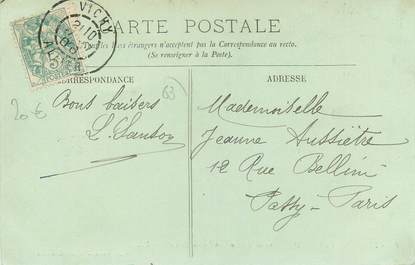 CARTE POSTALE
Tous les Pays étrangers n'acceptent pas la Correspondance au recto.
(Se renseigner à la Poste).
VICHY
ALLIER
CORRESPONDANCE
ADRESSE
20 €
63
Bons baisers
Mademoiselle
Jeanne
12 Rue Bellini
Passy - Paris